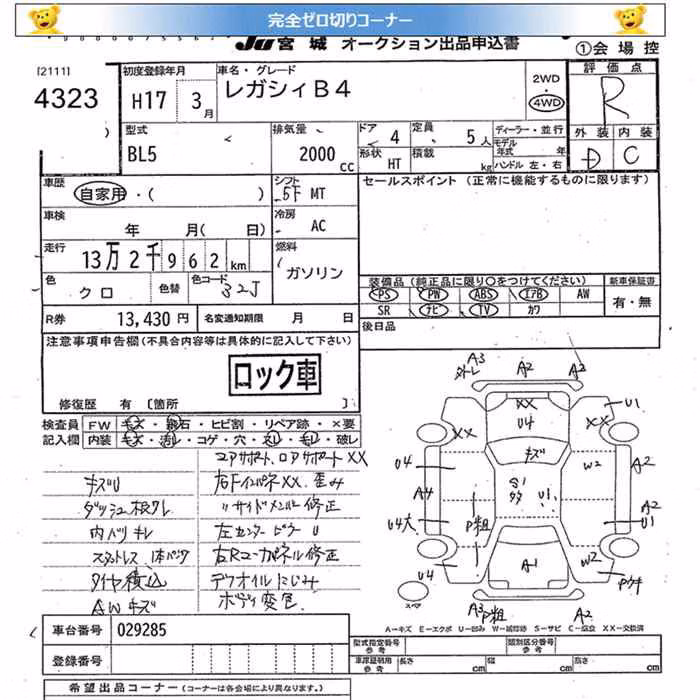 完全ゼロ切りコーナー
JU 宮城 オークション出品申込書
①会場控
[2111]
4323
初度登録年月
H17 3月
車名・グレード
レガシィB4
2WD
4WD
評価点
R
外装 内装
D C
型式
BL5
排気量
2000 cc
ドア 4
定員 5人
形状 HT
積載 kg
ディーラー・並行
モデル年式 年
ハンドル 左・右
車歴
自家用・( )
シフト
5F MT
セールスポイント (正常に機能するものに限ります)
車検
年 月(日)
冷房
AC
走行
13万2千962 km
燃料
ガソリン
色
クロ
色替
色コード
32J
装備品(純正品に限り○をつけてください)
PS PW ABS エアB AW
SR ナビ TV カワ
新車保証書
有・無
R券 13,430円
名変通知期限 月 日
後日品
注意事項申告欄(不具合内容等は具体的に記入して下さい)
ロック車
修復歴 有 〔箇所 〕
検査員記入欄
FW キズ・飛石・ヒビ割・リペア跡・×要
内装 キズ・汚れ・コゲ・穴・スレ・モレ・破レ
コアサポート、ロアサポートXX
キズU
右FインパネXX、歪み
ダッシュ板クレ
〃サイドメンバー修正
内バリキレ
左センターピラーU
スタットレス1本パンク
右Rコーナーパネル修正
タイヤ積込
デフオイルにじみ
AWキズ
ボディ変色
A3 外トレ A2 A3
XX U4 U1
XX キズ XX
U4 W2 A2
A4 U1
U4大 P粗 A2 U1
W2
U4 A1 Pケキ
スペア
A3 P粗 A2
A-キズ E-エクボ U-凹み W-補修跡 S-サビ C-腐食 XX-交換済
車台番号 029285
登録番号
型式指定番号 参考
類別区分番号 参考
車庫証明用 参考
長さ cm 幅 cm 高さ cm
希望出品コーナー(コーナーは各会場により異なります。)